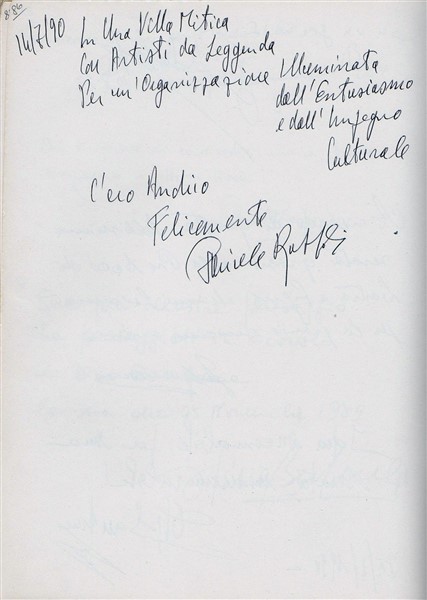 8.86
14/7/90
In Una Villa Mitica
Con Artisti da Leggenda
Per un'Organizzazione Illuminata
dall'Entusiasmo
e dall'Impegno
Culturale
C'ero Anch'io
Felicemente
Daniele